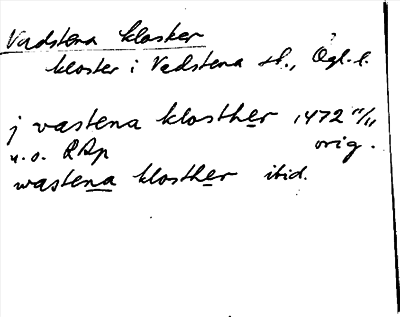 Vadstena kloster
kloster i Vadstena st., Ögl. l.
j vastena klosther 1472 11/11
u. o. RAp orig.
wastena klosther ibid.